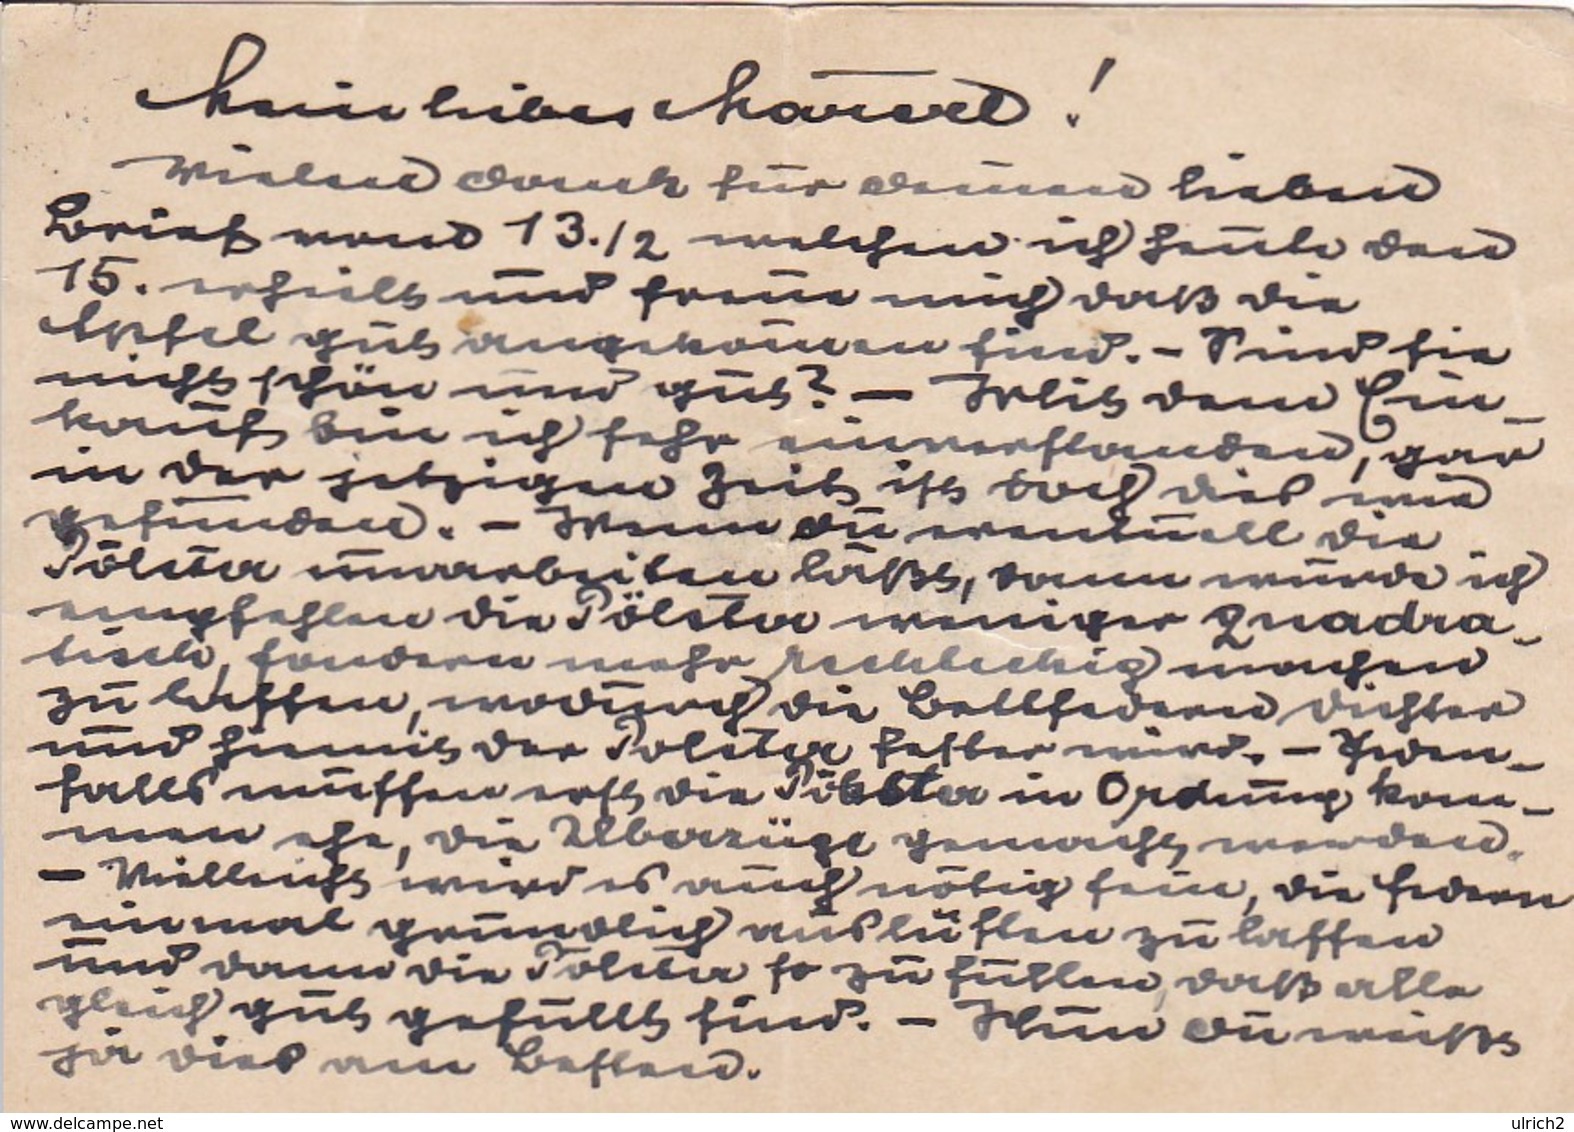 Mein liebes Marerl!
Vielen Dank für deinen lieben
Brief vom 13./2 welchen ich heute den
15. erhielt und freue mich daß die
Äpfel gut angekommen sind. – Sind sie
nicht schön und gut? – Mit dem Ein-
kauf bin ich sehr einverstanden, gar
in der jetzigen Zeit ist doch dies wie
gefunden. – Wenn du eventuell die
Pölster umarbeiten läßt, dann würde ich
empfehlen die Pölster weniger Quadra-
tisch, sondern mehr rechteckig machen
zu lassen, wodurch die Bettfedern dichter
und hiemit der Polster fester wird. – Jeden-
falls müssen erst die Pölster in Ordnung kom-
men ehe, die Überzüge gemacht werden.
– Vielleicht wird es auch nötig sein, die Federn
einmal gründlich auslüften zu lassen
und dann die Pölster so zu füllen, daß alle
gleich gut gefüllt sind. – Nun du weißt
ja dies am Besten.
www.delcampe.net
ulrich2